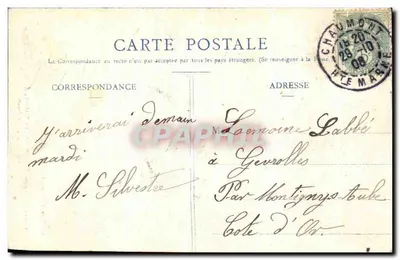 CARTE POSTALE
La Correspondance au recto n'est pas acceptée par tous les pays étrangers. (Se renseigner à la Poste)
CHAUMONT
15 20
26 -10
08
HTE MARNE
CORRESPONDANCE
ADRESSE
J'arriverai demain
mardi
M. Silvestre
M Lemoine Labbé
à Gevrolles
Par Montigny s Aube
Cote d'Or.
CPAPHIL